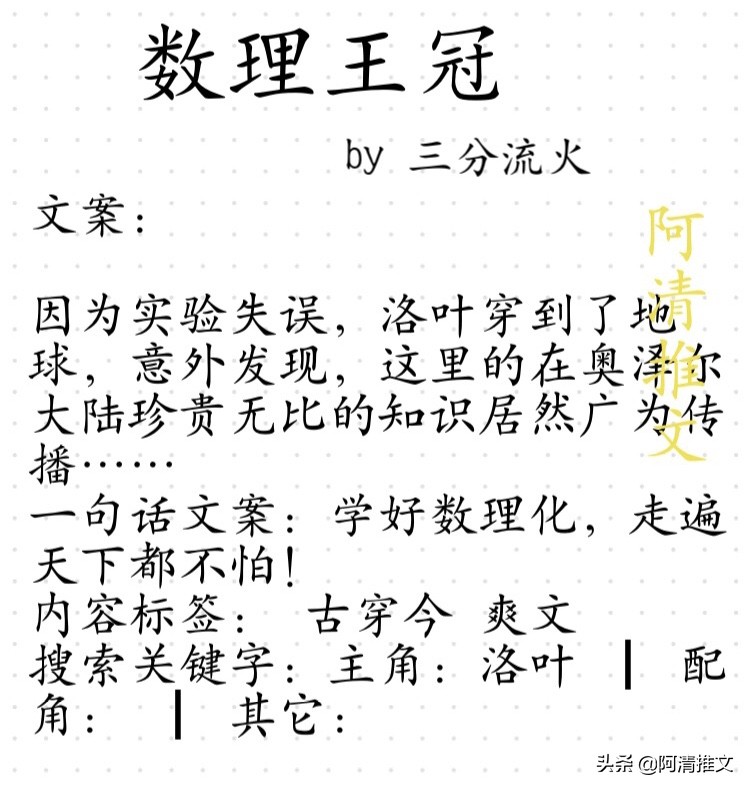 数理王冠
by 三分流火
文案：
因为实验失误，洛叶穿到了地
球，意外发现，这里的在奥泽尔
大陆珍贵无比的知识居然广为传
播……
一句话文案：学好数理化，走遍
天下都不怕！
内容标签： 古穿今 爽文
搜索关键字：主角：洛叶 ┃ 配
角： ┃ 其它：
阿清推文
头条 @阿清推文